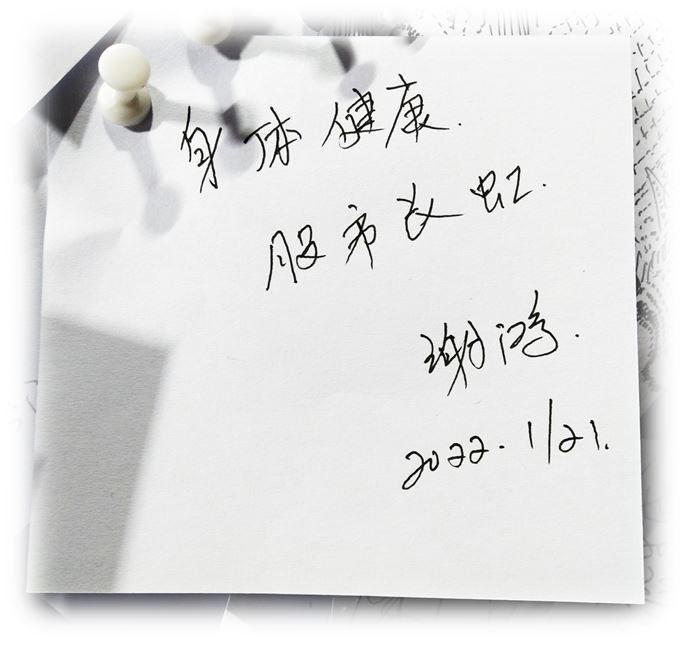 身体健康.
股市长虹.
谢鸿.
2022.1/21.